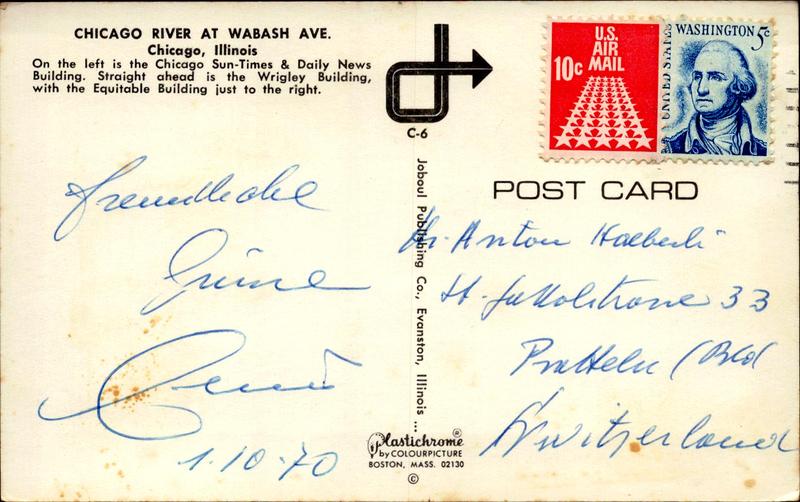 CHICAGO RIVER AT WABASH AVE.
Chicago, Illinois
On the left is the Chicago Sun-Times & Daily News
Building. Straight ahead is the Wrigley Building,
with the Equitable Building just to the right.
C-6
U.S.
AIR
MAIL
10c
UNITED STATES
WASHINGTON 5c
POST CARD
Joboul Publishing Co., Evanston, Illinois ...
freundliche
Grüsse
1.10.70
Anton
St. Jakobstrasse 33
Pratteln
Switzerland
Plastichrome ®
by COLOURPICTURE
BOSTON, MASS. 02130
©